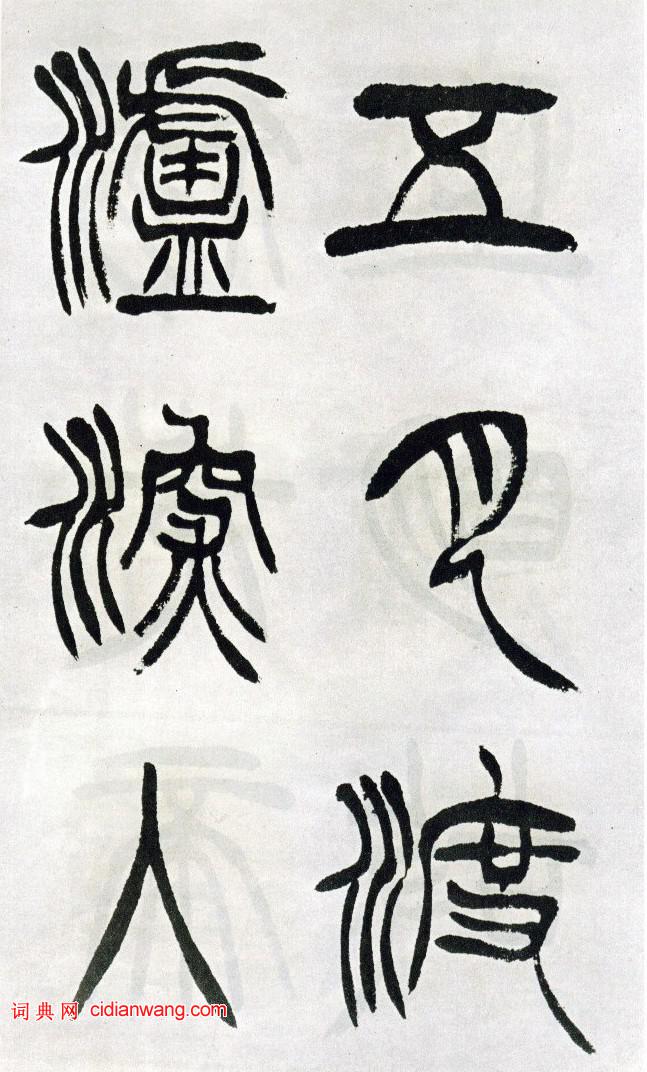 五月渡
瀘深入
词典网 cidianwang.com